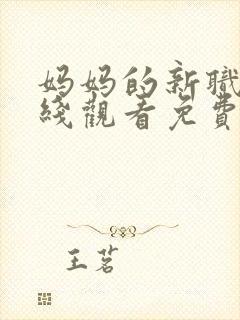 妈妈的新職
綫觀看免費
王茗